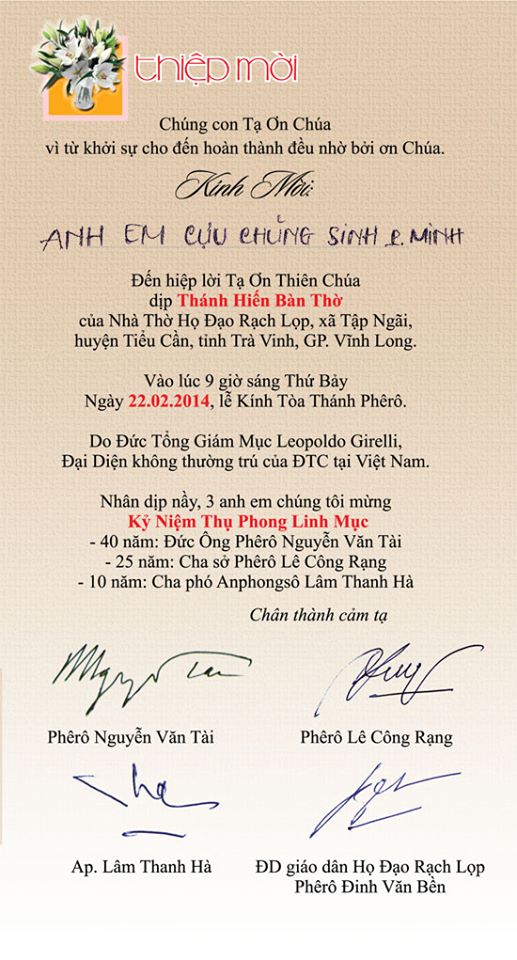 thiệp mời
Chúng con Tạ Ơn Chúa
vì từ khởi sự cho đến hoàn thành đều nhờ bởi ơn Chúa.
Kính Mời:
ANH EM CỰU CHỦNG SINH P. MINH
Đến hiệp lời Tạ Ơn Thiên Chúa
dịp Thánh Hiến Bàn Thờ
của Nhà Thờ Họ Đạo Rạch Lọp, xã Tập Ngãi,
huyện Tiểu Cần, tỉnh Trà Vinh, GP. Vĩnh Long.
Vào lúc 9 giờ sáng Thứ Bảy
Ngày 22.02.2014, lễ Kính Tòa Thánh Phêrô.
Do Đức Tổng Giám Mục Leopoldo Girelli,
Đại Diện không thường trú của ĐTC tại Việt Nam.
Nhân dịp nầy, 3 anh em chúng tôi mừng
Kỷ Niệm Thụ Phong Linh Mục
- 40 năm: Đức Ông Phêrô Nguyễn Văn Tài
- 25 năm: Cha sở Phêrô Lê Công Rạng
- 10 năm: Cha phó Anphongsô Lâm Thanh Hà
Chân thành cảm tạ
Phêrô Nguyễn Văn Tài
Phêrô Lê Công Rạng
Ap. Lâm Thanh Hà
ĐD giáo dân Họ Đạo Rạch Lọp
Phêrô Đinh Văn Bền